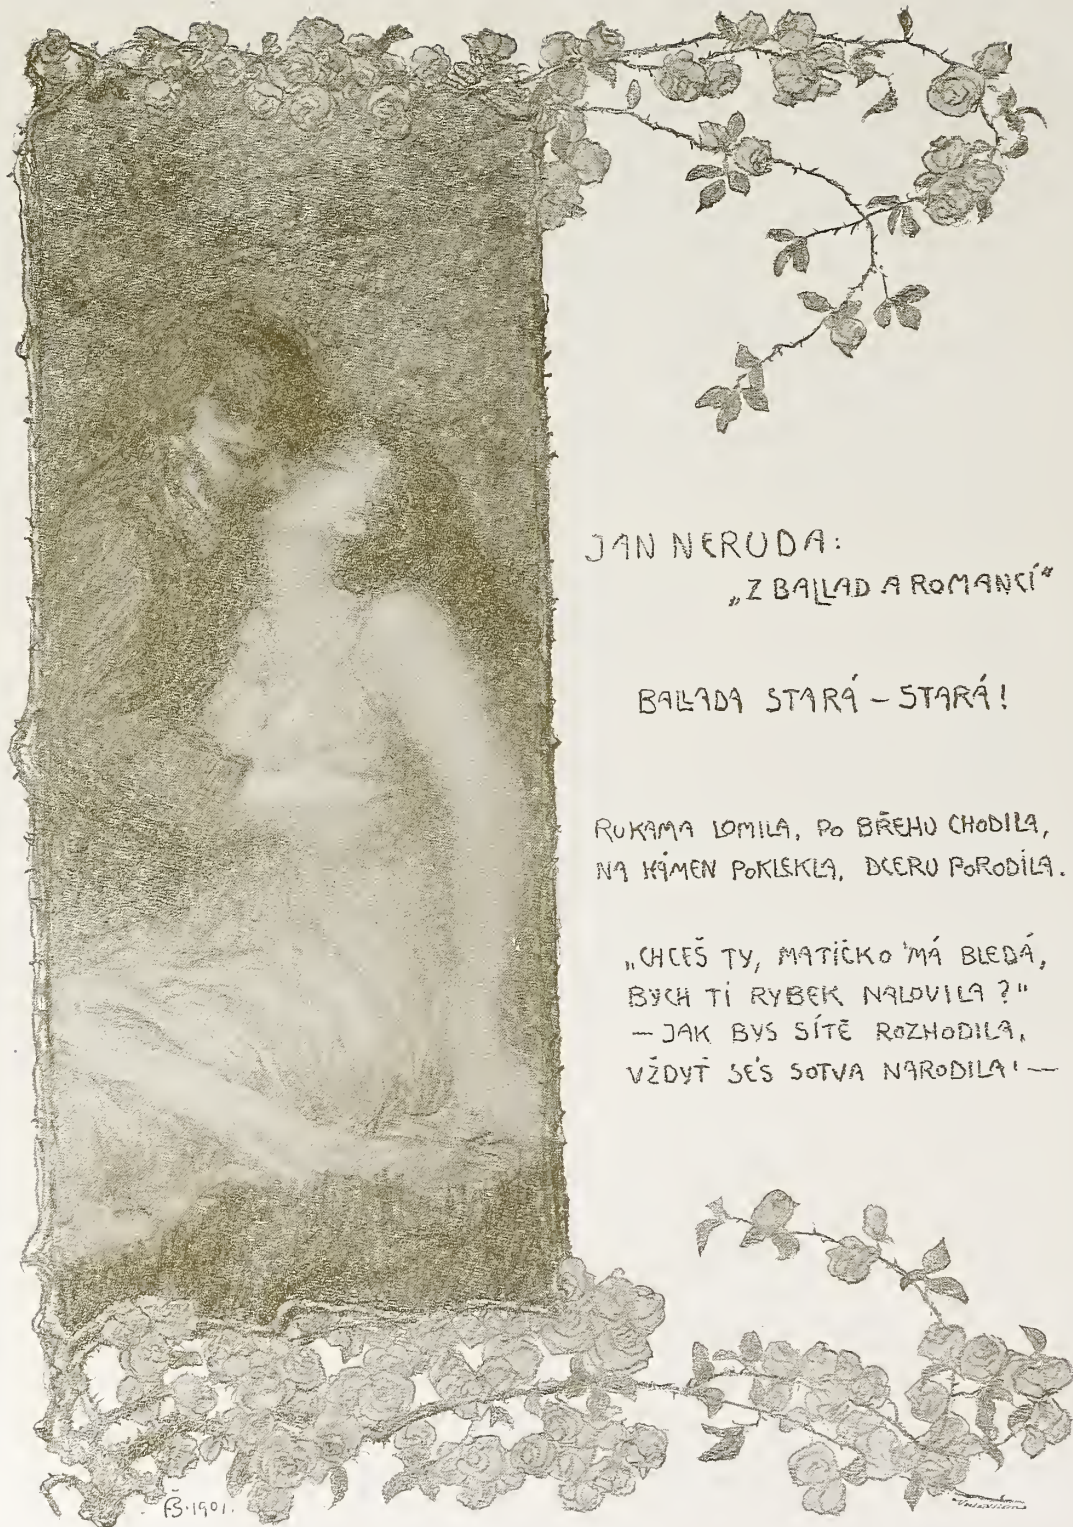 JAN NERUDA:
„Z BALLAD A ROMANCÍ“
BALLADA STARÁ – STARÁ!
RUKAMA LOMILA, PO BŘEHU CHODILA,
NA KÁMEN POKLEKLA, DCERU PORODILA.
„CHCEŠ TY, MATIČKO MÁ BLEDÁ,
BYCH TI RYBEK NALOVILA?"
– JAK BYS SÍTĚ ROZHODILA,
VŽDYŤ SÉS SOTVA NARODILA! –
FŠ·1901.